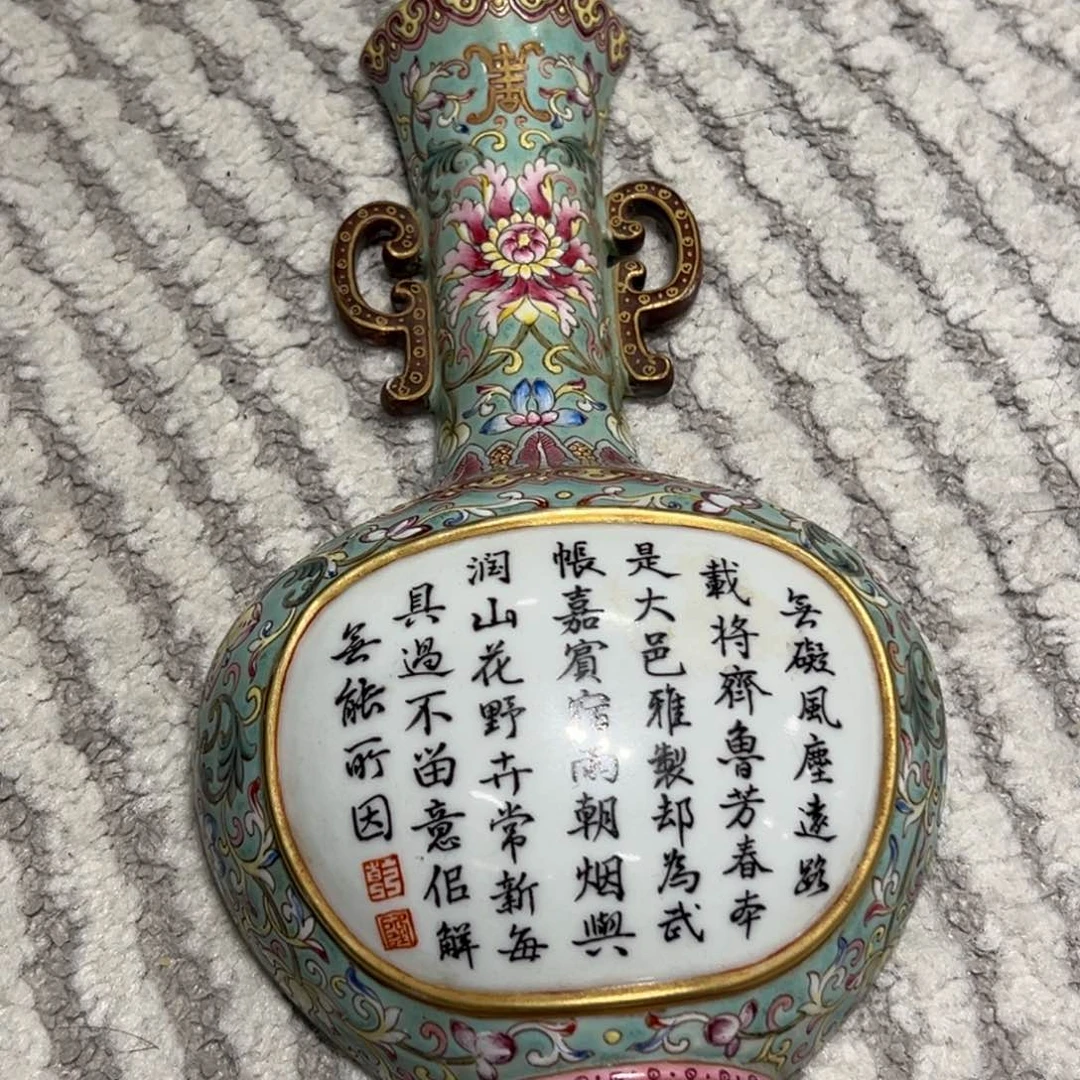 無礙風塵遠路
載将齊魯芳春本
是大邑雅製却為武
帳嘉賓宿雨朝烟與
润山花野卉常新每
具過不畄意佀解
無能所因
乾
隆